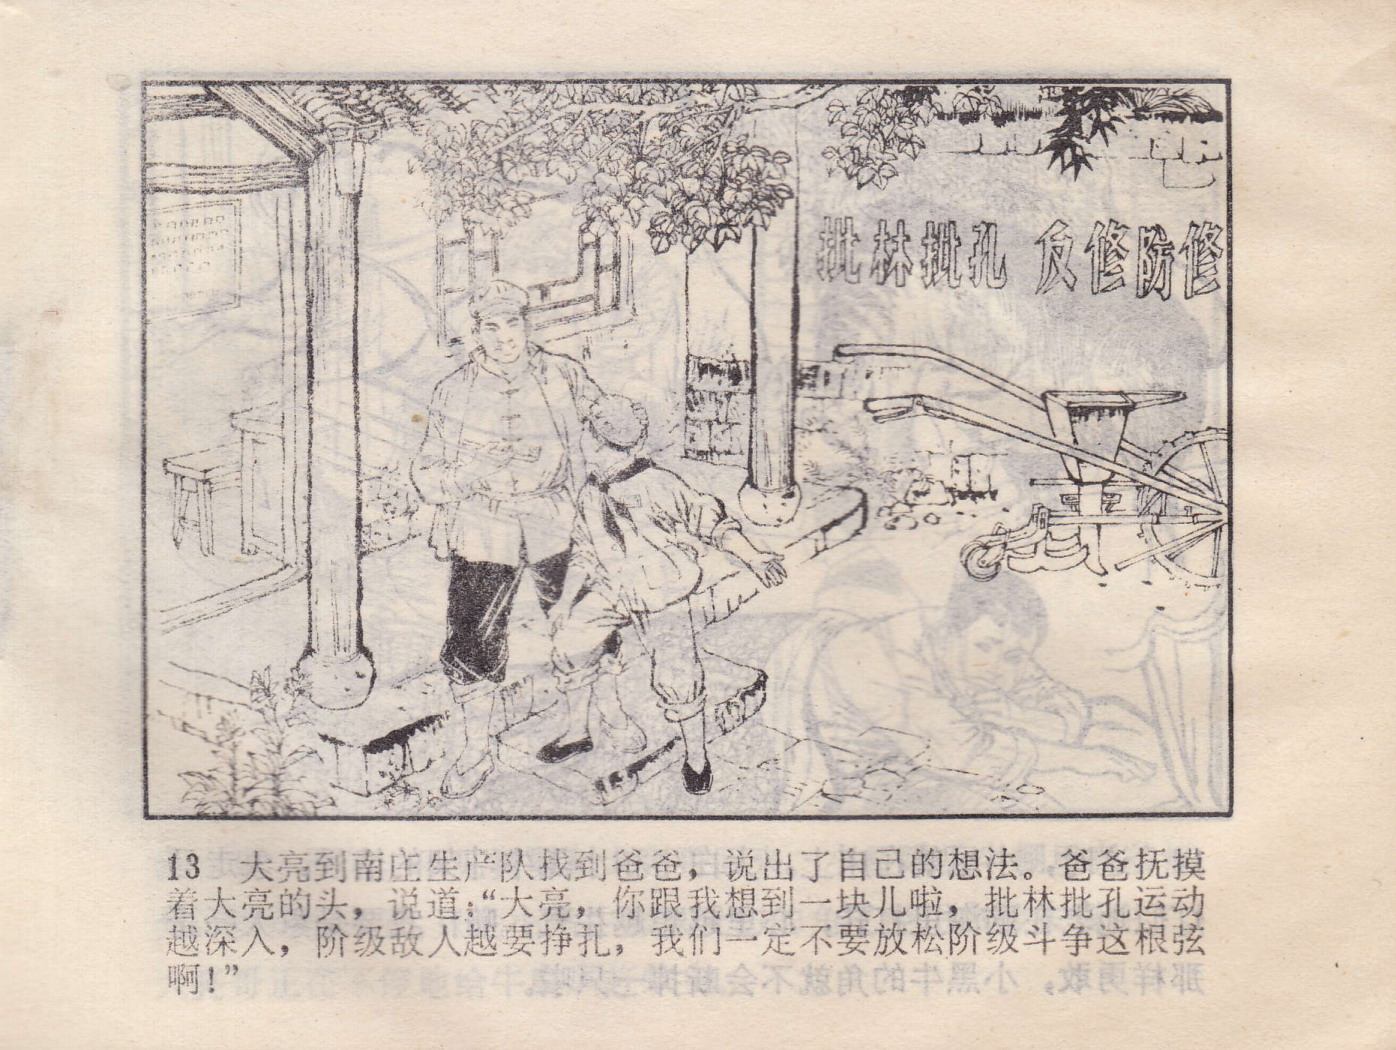 批林批孔 反修防修
13 大亮到南庄生产队找到爸爸，说出了自己的想法。爸爸抚摸
着大亮的头，说道：“大亮，你跟我想到一块儿啦，批林批孔运动
越深入，阶级敌人越要挣扎，我们一定不要放松阶级斗争这根弦
啊！”